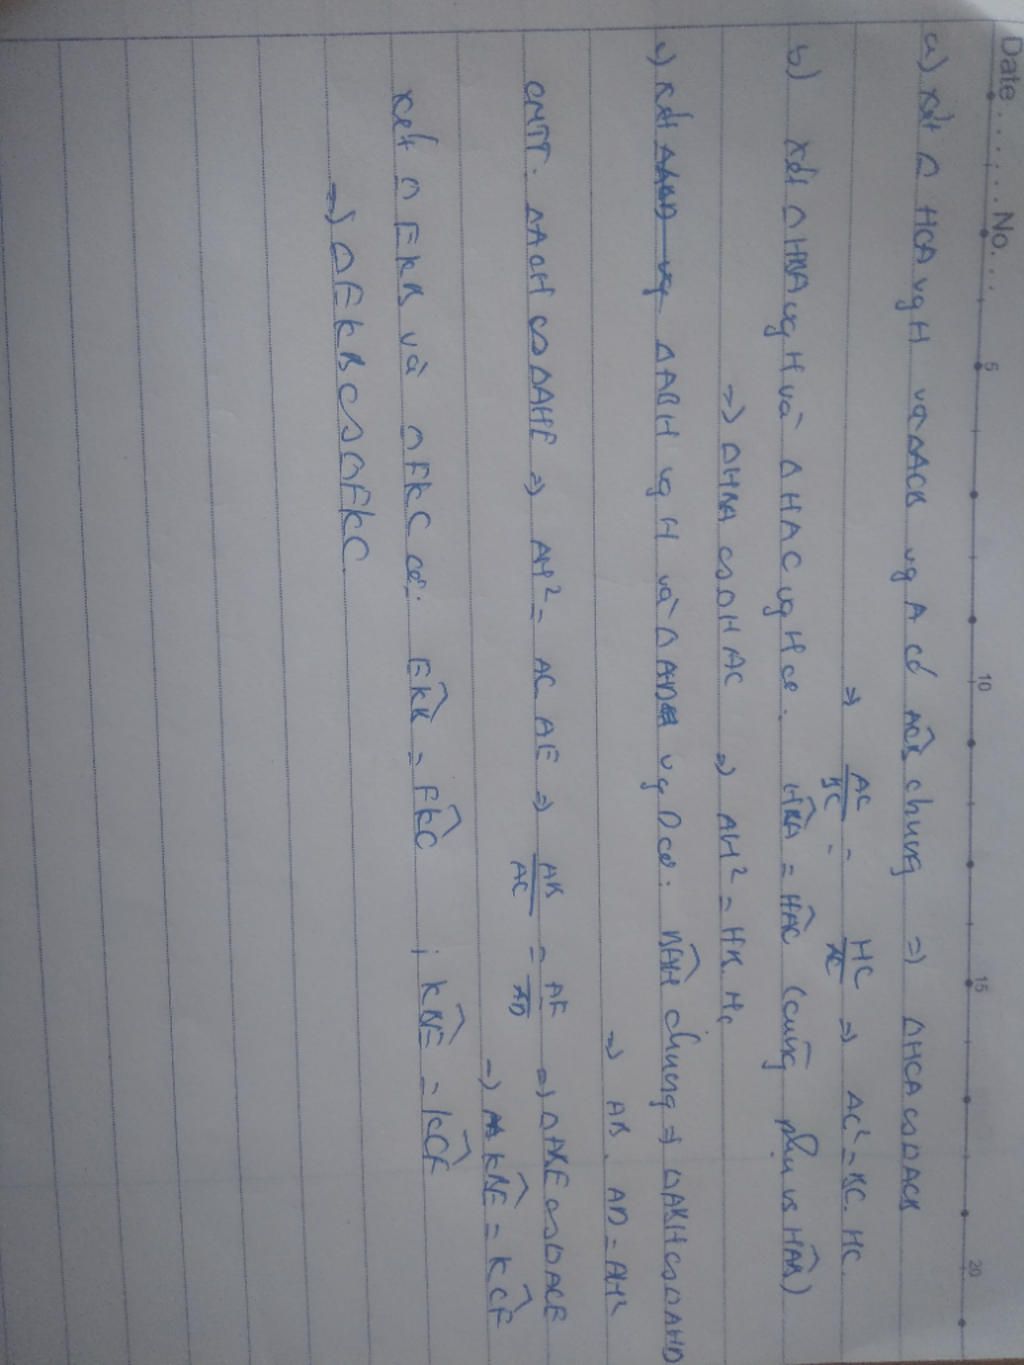 Date . . . . . . No. . . .
5 10 15 20
a) xét △ HCA vg H và △ACB vg A có ACB chung => △HCA ∽ △ACB
=> AC/BC = HC/AC => AC² = BC. HC.
b) xét △ HBA vg H và △ HAC vg H có: HBA = HAC (cùng phụ vs HAB)
=> △HBA ∽ △HAC => AH² = HB. HC
c) xét △ABH vg H và △ vg D có: BAH chung => △ABH ∽ △AHD
=> AB. AD = AH²
CMTT: △ACH ∽ △AHE => AH² = AC. AE => AB/AC = AE/AD => △ABE ∽ △ACE
=> KBE = KCF
xét △ EKB và △ FKC có: EKB = FKC ; KBE = KCF
=> △EKB ∽ △FKC.